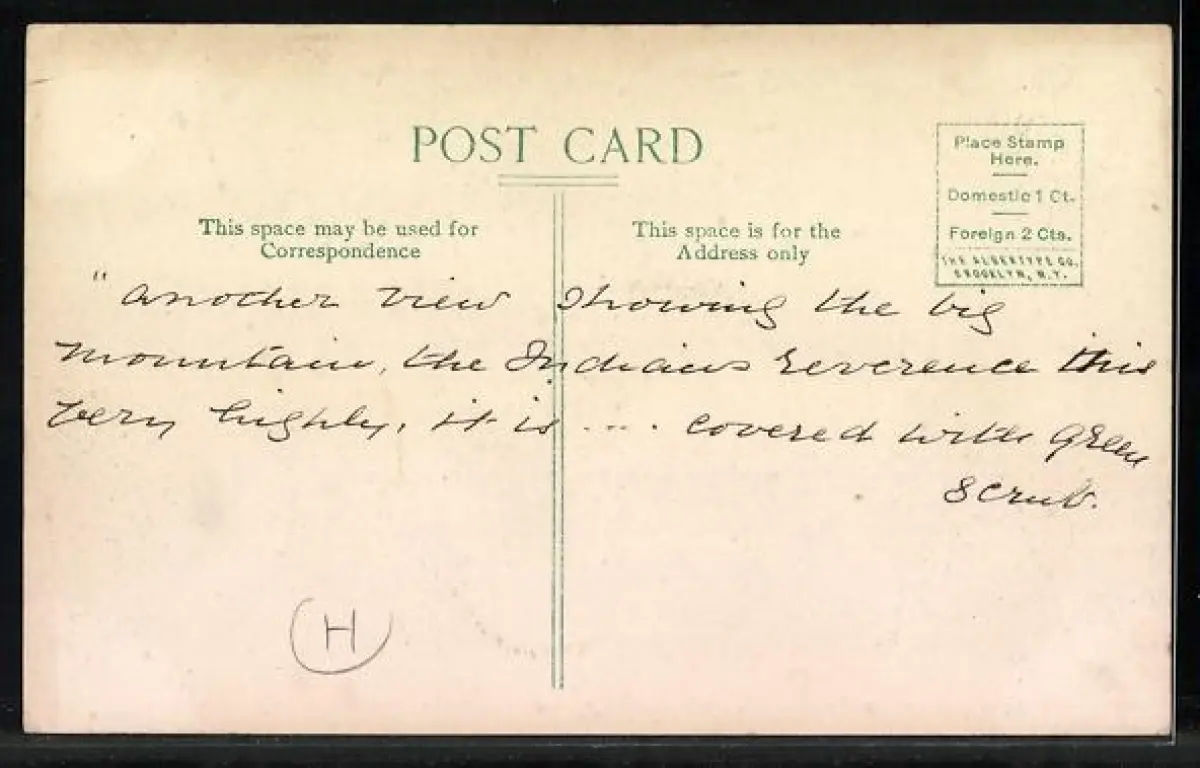 POST CARD
Place Stamp
Here.
Domestic 1 Ct.
Foreign 2 Cts.
THE ALBERTYPE CO.
BROOKLYN, N.Y.
This space may be used for
Correspondence
This space is for the
Address only
" another view showing the big
mountain, the Indians reverence this
very highly, it is .... covered with green
scrub.
H